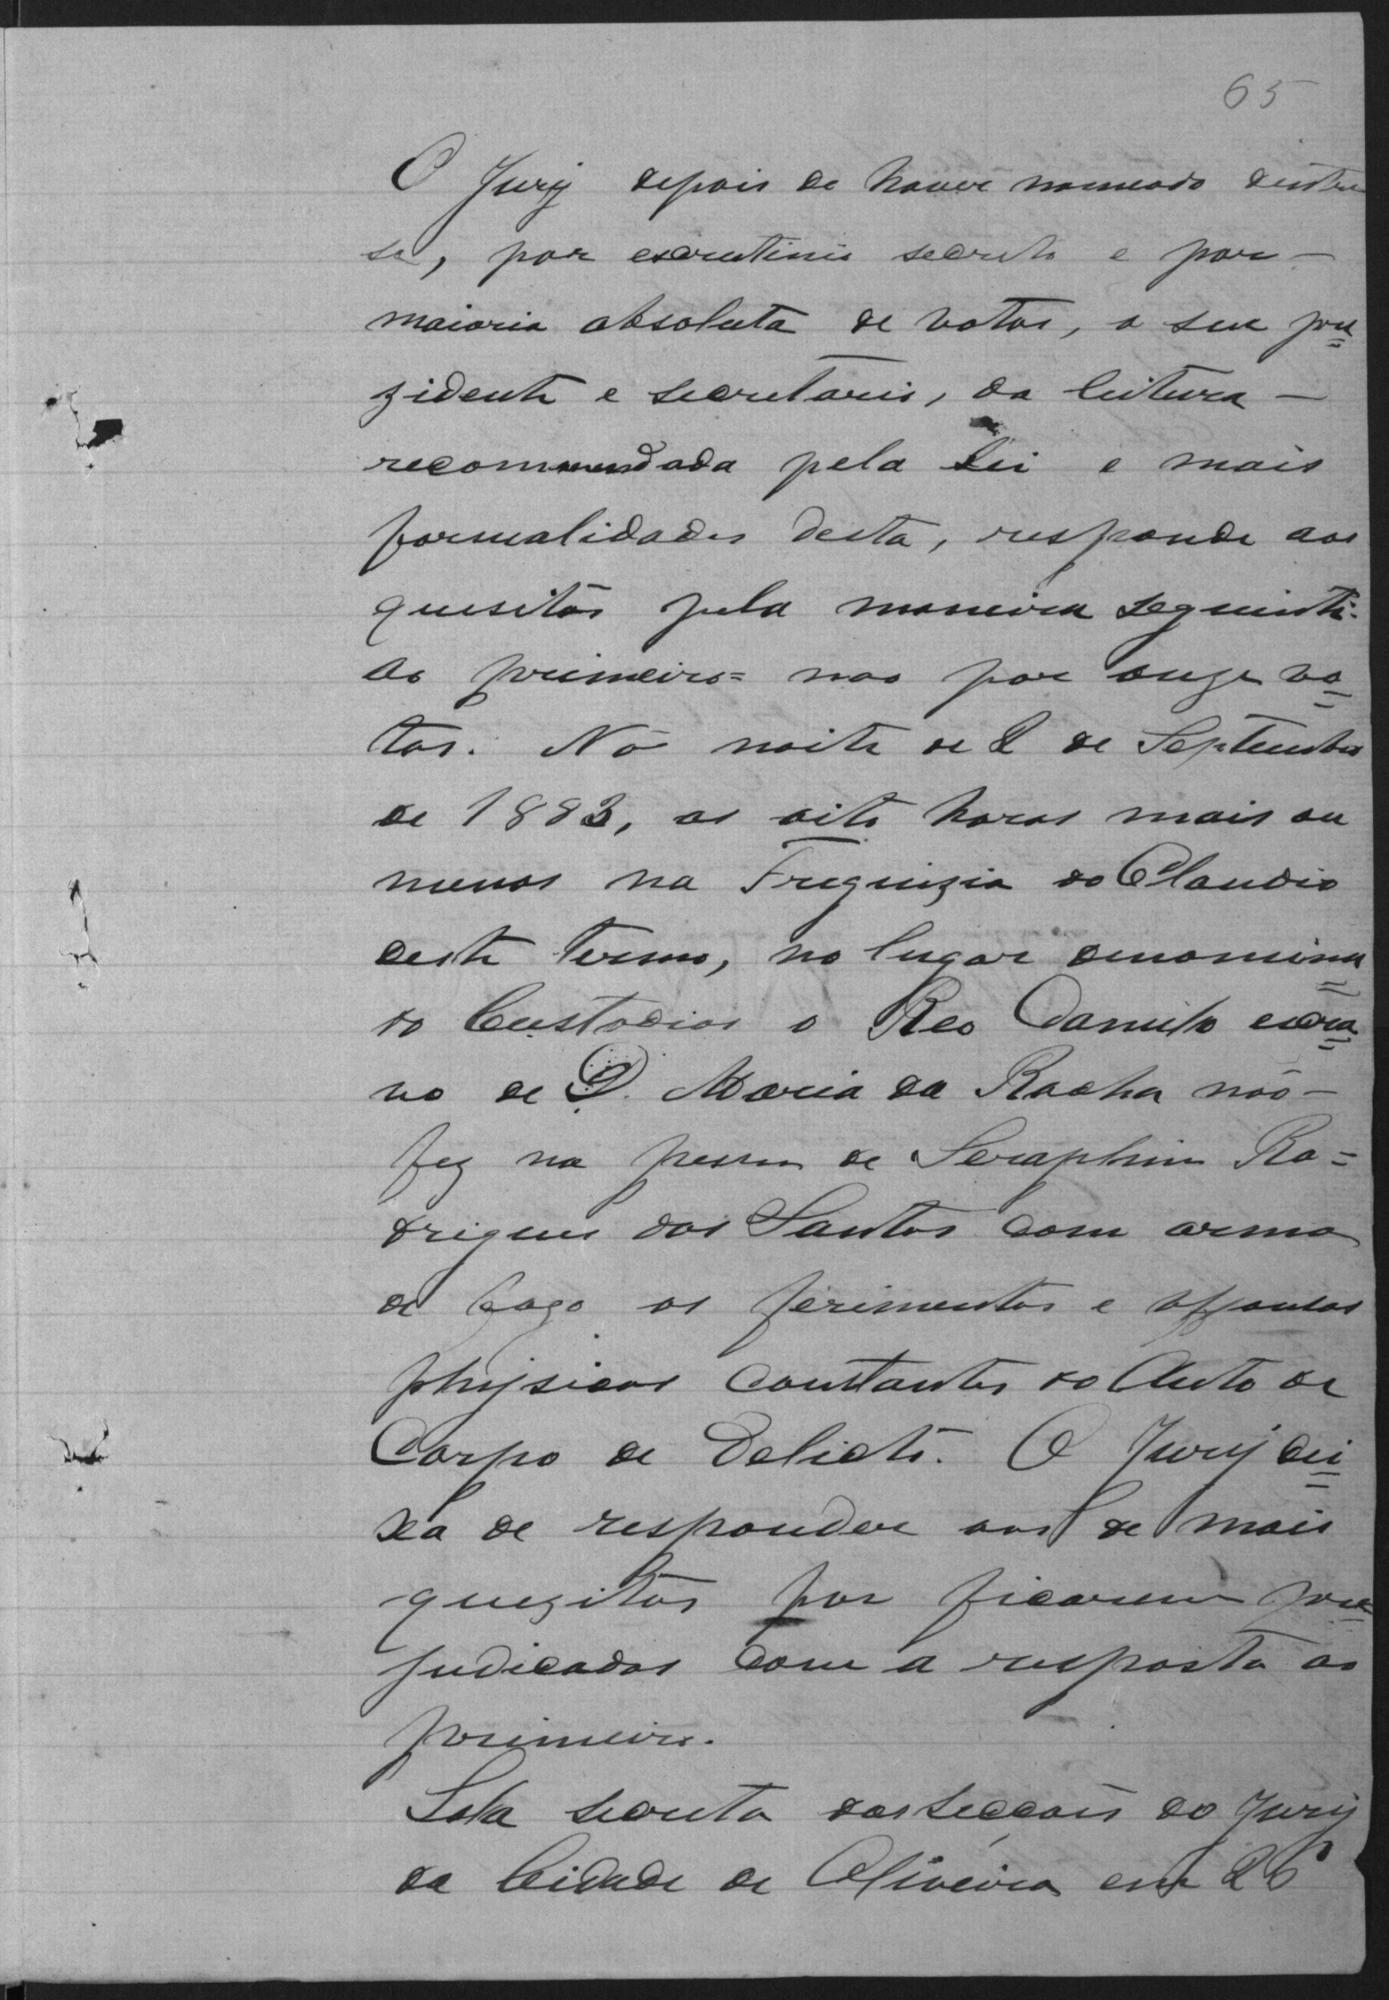 65
O Jury depois de haver nomeado dentre
si, por escrutinio secreto e por –
maioria absoluta de votos, o seu pre=
zidente e secretario, da leitura –
recommendada pela Lei e mais
formalidades desta, responde aos
quesitos pela maneira seguinte.
Ao primeiro = não por onze vo=
tos. Na noite de 2 de Septembro
de 1883, as oito horas mais ou
menos na Freguezia do Claudio
deste Termo, no lugar denomina=
do Custodios o Reo Camilo escra=
vo de D. Maria da Rocha não –
fez na pessoa de Seraphim Ro=
drigues dos Santos com arma
de fogo os ferimentos e offensas
physicas constantes do Auto de
Corpo de Delicto. O Jury dei=
xa de responder aos de mais
quezitos por ficarem pre=
judicados com a resposta ao
primeiro.
Sala secreta das secçoes do Jury
da Cidade de Oliveira em 26